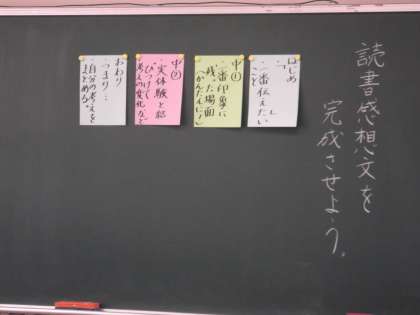 読書感想文を
完成させよう。
はじめ
「　　」
・一番伝えたい
こと
中①
・一番印象に
残った場面
(かんたんに!)
中②
・実体験と結
びつけて
考えの変化など
おわり
・つまり…
・自分の考えを
まとめる。